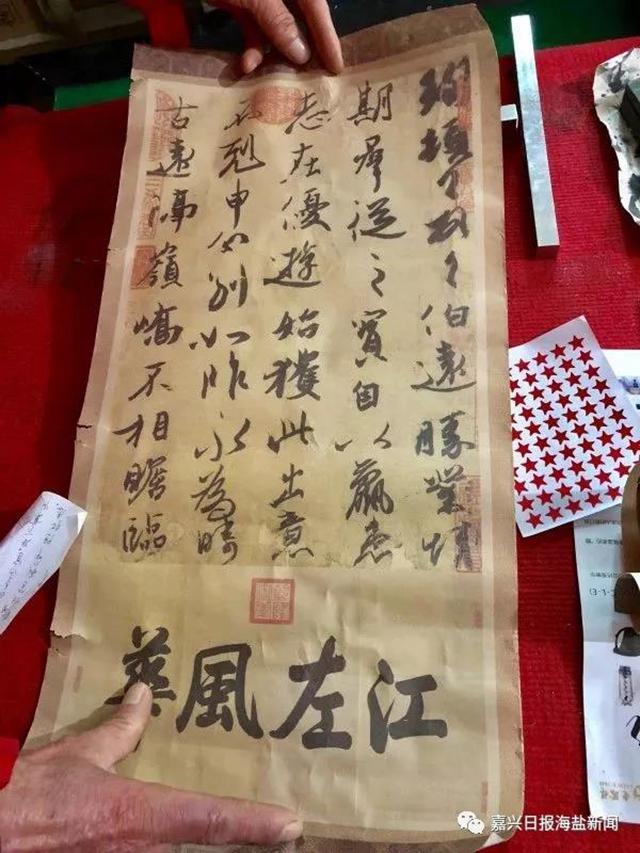 珣頓首頓首伯遠勝業情
期群從之寶自以羸患
志在優遊始獲此出意
不剋申分別如昨永為疇
古遠隔嶺嶠不相瞻臨
江左風華
嘉兴日报海盐新闻